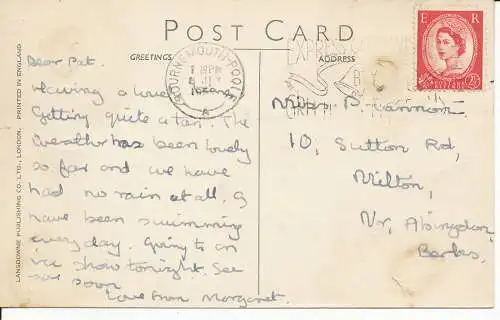 POST CARD
GREETINGS
ADDRESS
E R
2½D
BOURNEMOUTH-POOLE
A
EXPRESS
Dear Pat.
Having a lovely
Getting quite a tan. The
weather has been lovely
so far and we have
had no rain at all. I
have been swimming
everyday. Going to an
ice show tonight. See
you soon
Love from Margaret.
Miss P.
10, Sutton Rd,
Milton,
Nr, Abingdon,
Berks.
LANSDOWNE PUBLISHING CO. LTD., LONDON. PRINTED IN ENGLAND